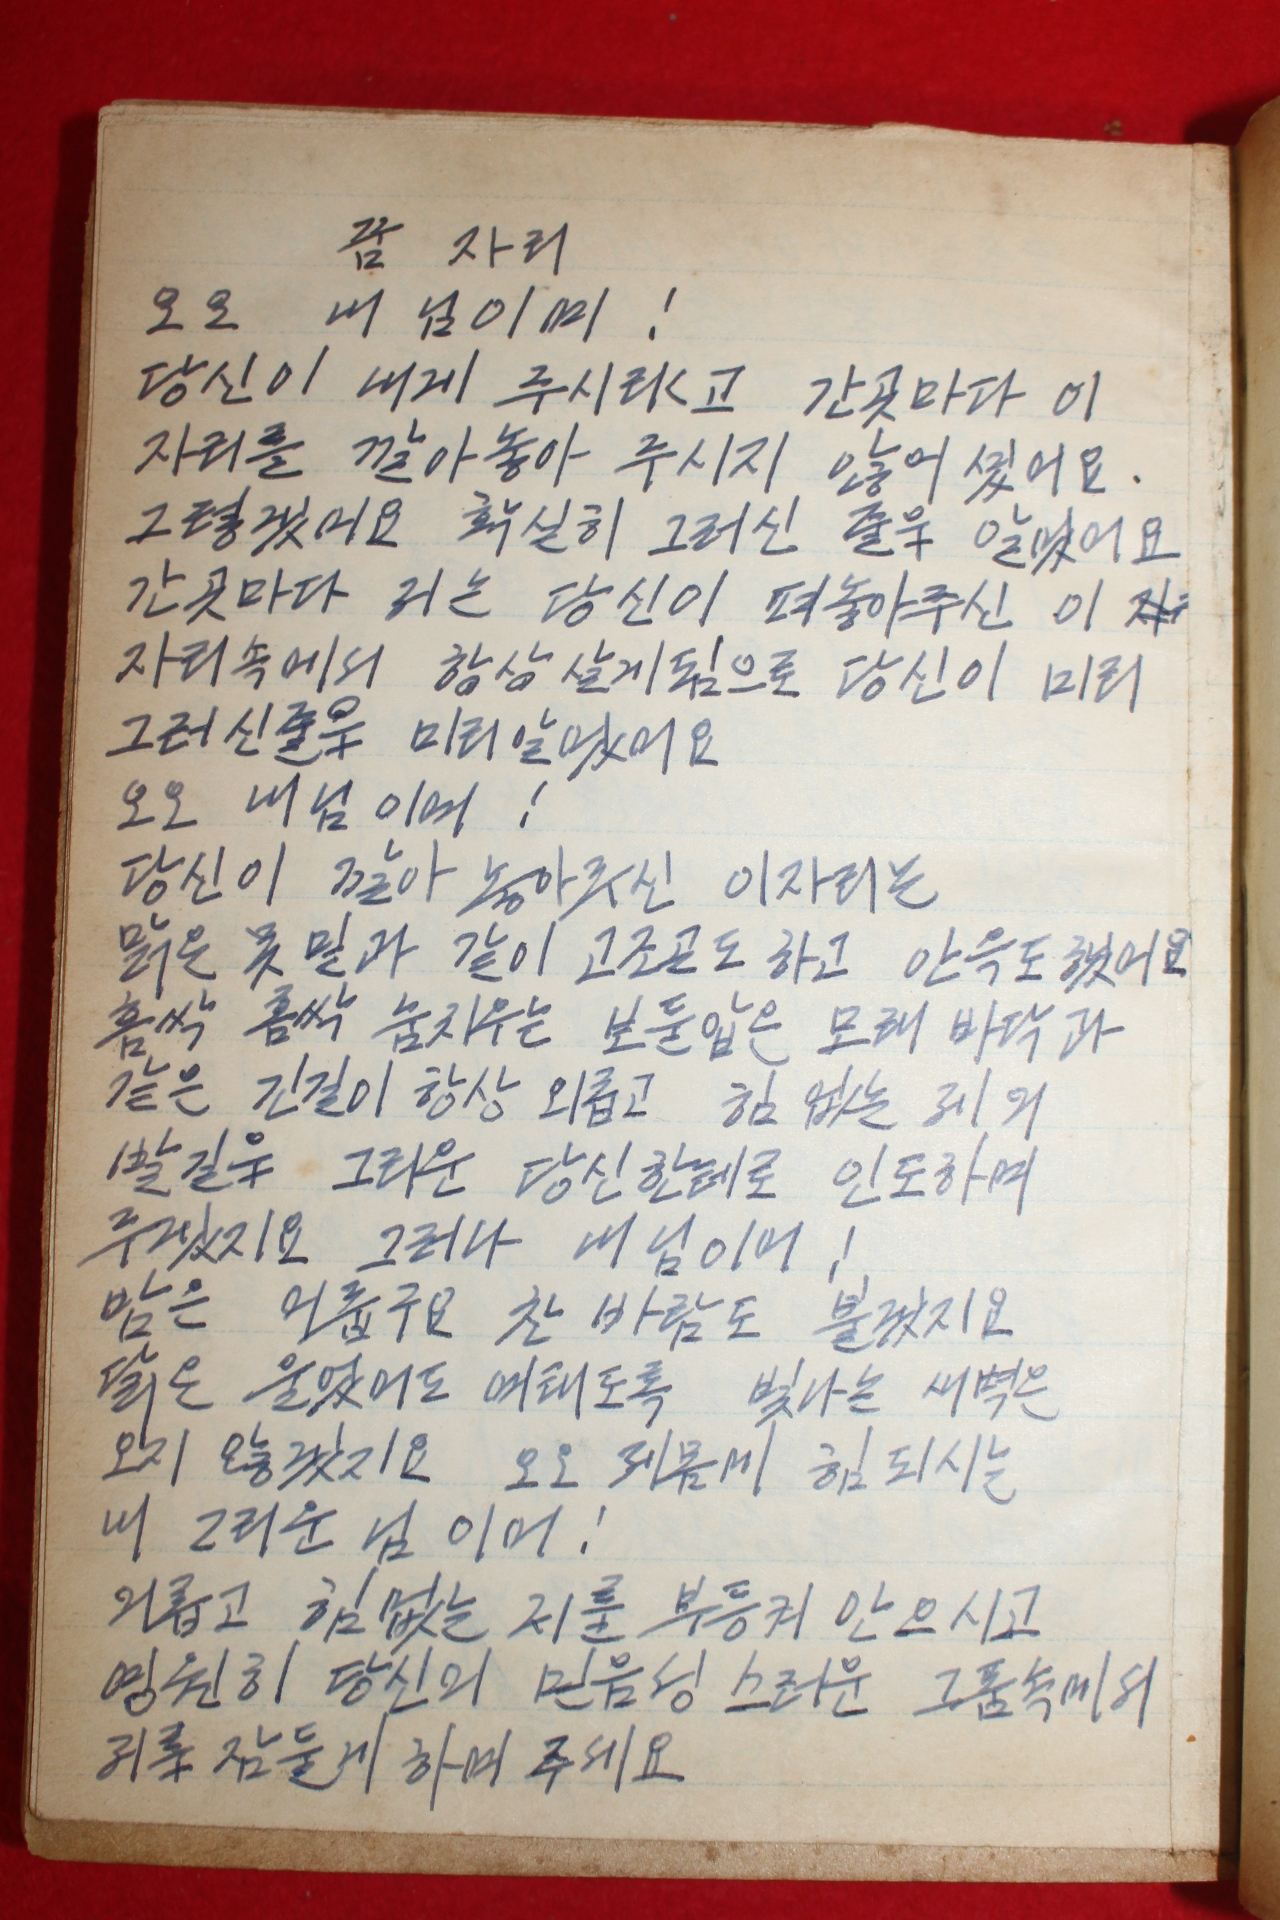 꿈 자리
오오 내 님이며 !
당신이 내게 주시려고 간곳마다 이
자리를 깔아놓아 주시지 않어셨어요.
그렇겠어요 확실히 그러신 줄우 알었어요
간곳마다 저는 당신이 펴놓아주신 이
자리속에서 항상 살게됨으로 당신이 미리
그러신줄우 미리알었어요
오오 내님 이여 !
당신이 깔아 놓아주신 이자리는
맑은 못 밑과 같이 고조곤도 하고 안윽도했어요
홈싹 홈싹 눕지우는 보들앞은 모래 바닥과
같은 긴길이 항상 외롭고 힘 없는 제 의
발길우 그리운 당신한테로 인도하며
주겠지요 그러나 내 님이여 !
밤은 어릅구요 찬 바람도 불겠지요
닭은 울었어도 여태도록 빛나는 새벽은
오지 않겠지요 오오 제몸에 힘 되시는
내 그리운 님 이여 !
외롭고 힘없는 저를 부등켜 안으시고
영원히 당신의 믿음성 스러운 그품속에서
저루 잠들게 하며 주세요